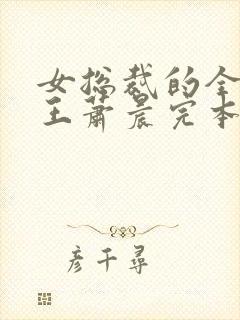 女总裁的全
王萧晨完本
彦千寻